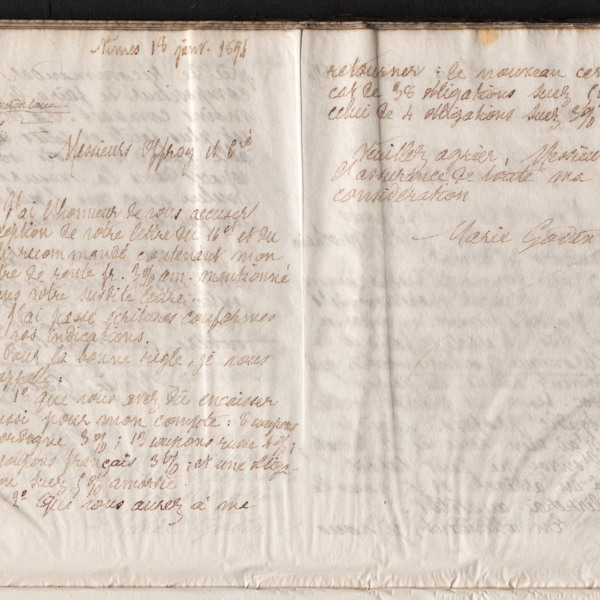 Nimes 18 janv. 1894
Messieurs Offroy et Cie
J'ai l'honneur de vous accuser
ception de votre lettre du 16 ct et du
li recommandé contenant mon
tre de rente fr. 3% am. mentionné
ans votre susdite lettre.
J'ai passé écritures conformes
à vos indications.
Pour la bonne règle, je vous
appelle :
1° que vous avez dû encaisser
ussi pour mon compte : 8 coupons
ordogne 3% ; 13 coupons russe 4% ;
coupons français 3% ; et une obliga-
on suez 5% amortie.
2° Que vous aurez à me
retourner : le nouveau cer
cat de 38 obligations suez 5
celui de 4 obligations suez 3%
Veuillez agréer, Messieu
l'assurance de toute ma
considération
Marie Godin